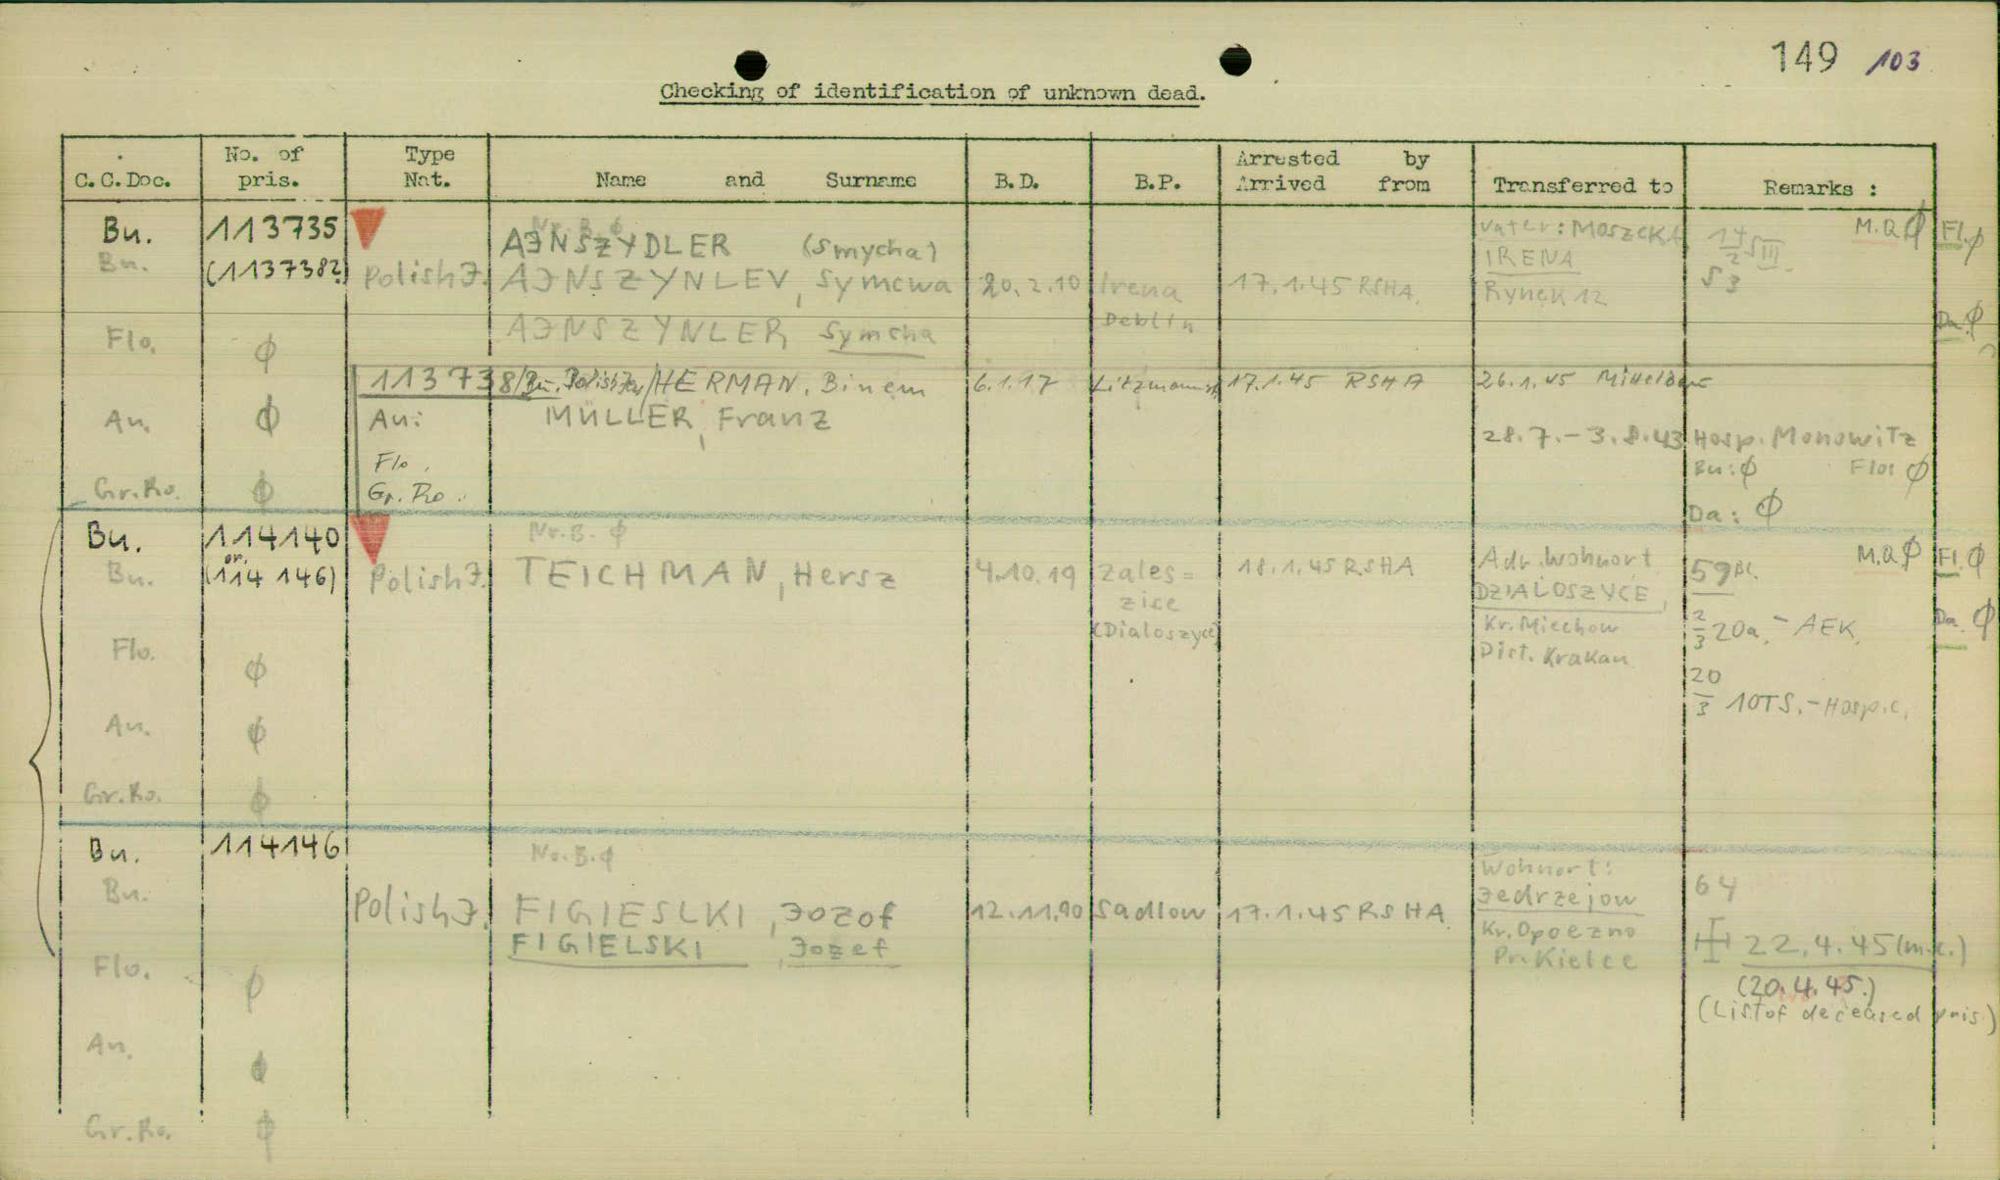 149 103
Checking of identification of unknown dead.
C.C.Doc.
No. of pris.
Type Nat.
Name and Surname
B.D.
B.P.
Arrested by
Arrived from
Transferred to
Remarks :
Bu. 113735 Nr. B. ϕ
AJNSZYDLER (Smycha) Vater: Moszek M.Q ϕ Fl. ϕ
Bu. (113738?) Polish J. AJNSZYNLEV, Symcwa 20.2.10 Irena 17.1.45 RSHA. IRENA
Deblin Rynek 12
Flo. ϕ AJNSZYNLER, Symcha Da. ϕ
113738/Bu. Polish J/HERMAN, Binem 6.1.17 17.1.45 RSHA 26.1.45 Mittelbau
An. ϕ An: MÜLLER, Franz
28.7.-3.8.43 Hosp. Monowitz
Flo. Bu: ϕ Flo: ϕ
Gr.Ro. ϕ Gr. Ro.
Da: ϕ
Bu. 114140 Nr. B. ϕ Adr. Wohnort M.Q ϕ Fl. ϕ
or
Bu. (114 146) Polish J. TEICHMAN, Hersz 4.10.19 Zales= 18.1.45 RSHA DZIALOSZYCE, 59 Bl.
zice
(Dialoszyce) Kr. Miechow 2/3 20a. - AEK. Da. ϕ
Flo. ϕ Dist. Krakau
20/3 10TS. - Hosp.
An. ϕ
Gr.Ro. ϕ
Bu. 114146 No. B. ϕ Wohnort:
Bu. Jedrzejow 64
Polish J. FIGIESLKI, Jozof 12.11.90 Sadlow 17.1.45 RSHA Kr. Opoezno
FIGIELSKI, Jozef Pr. Kielce 22.4.45 (m.c.)
Flo. ϕ (20.4.45.)
(List of deceased pris.)
An. ϕ
Gr.Ro. ϕ